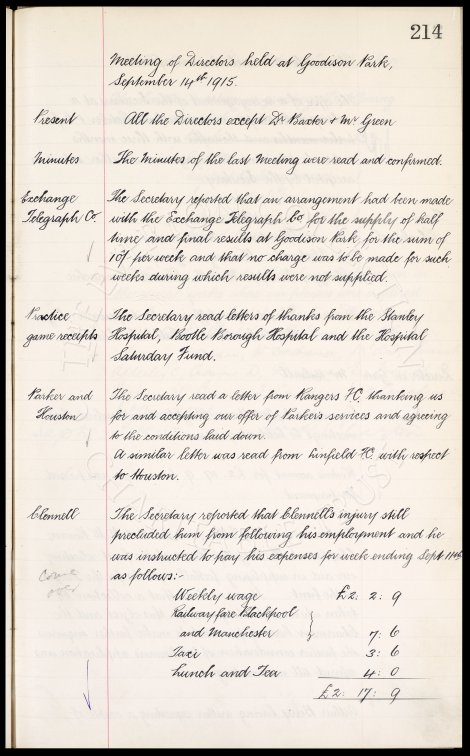 214
Meeting of Directors held at Goodison Park,
September 14th 1915.
Present All the Directors except Dr Baxter + Mr Green
Minutes The Minutes of the last Meeting were read and confirmed.
Exchange The Secretary reported that an arrangement had been made
Telegraph Co. with the Exchange Telegraph Co for the supply of half
time and final results at Goodison Park for the sum of
10/- per week and that no charge was to be made for such
weeks during which results were not supplied.
Practice The Secretary read letters of thanks from the Stanley
game receipts Hospital, Bootle Borough Hospital and the Hospital
Saturday Fund.
Parker and The Secretary read a letter from Rangers F.C. thanking us
Houston for and accepting our offer of Parker's services and agreeing
to the conditions laid down.
A similar letter was read from Linfield F.C. with respect
to Houston.
Clennell The Secretary reported that Clennell's injury still
precluded him from following his employment and he
was instructed to pay his expenses for week ending Sept. 11th
as follows:-
Weekly wage £2: 2: 9
Railway fare Blackpool
and Manchester 7: 6
Taxi 3: 6
Lunch and Tea 4: 0
£2: 17: 9